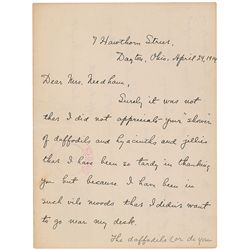 7 Hawthorn Street,
Dayton, Ohio, April 29, 191
Dear Mrs. Needham,
Surely it was not
that I did not appreciate your "shower
of daffodils and hyacinths and jellies
that I have been so tardy in thanking
you but because I have been in
such vile moods that I didn't want
to go near my desk.
The daffodils (or do you